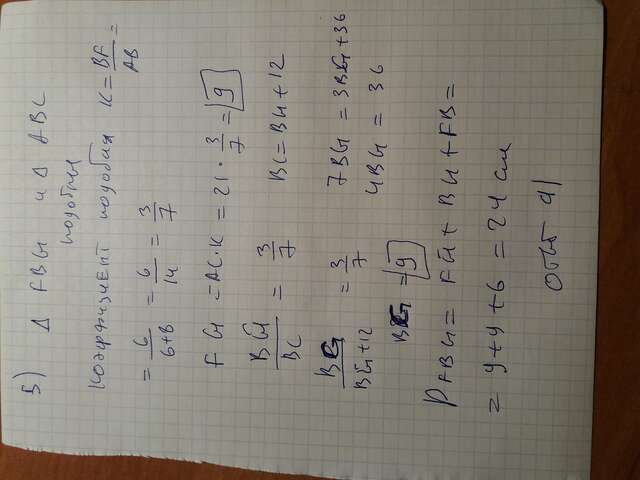 5) Δ FBG и Δ ABC
подобны
Коэффициент подобия K = BF/AB =
= 6/(6+8) = 6/14 = 3/7
FG = AC·K = 21 · 3/7 = 9
BG/BC = 3/7 BC = BG + 12
BG/(BG+12) = 3/7 7BG = 3BG + 36
4BG = 36
BG = 9
P FBG = FG + BG + FB =
= 9 + 9 + 6 = 24 см